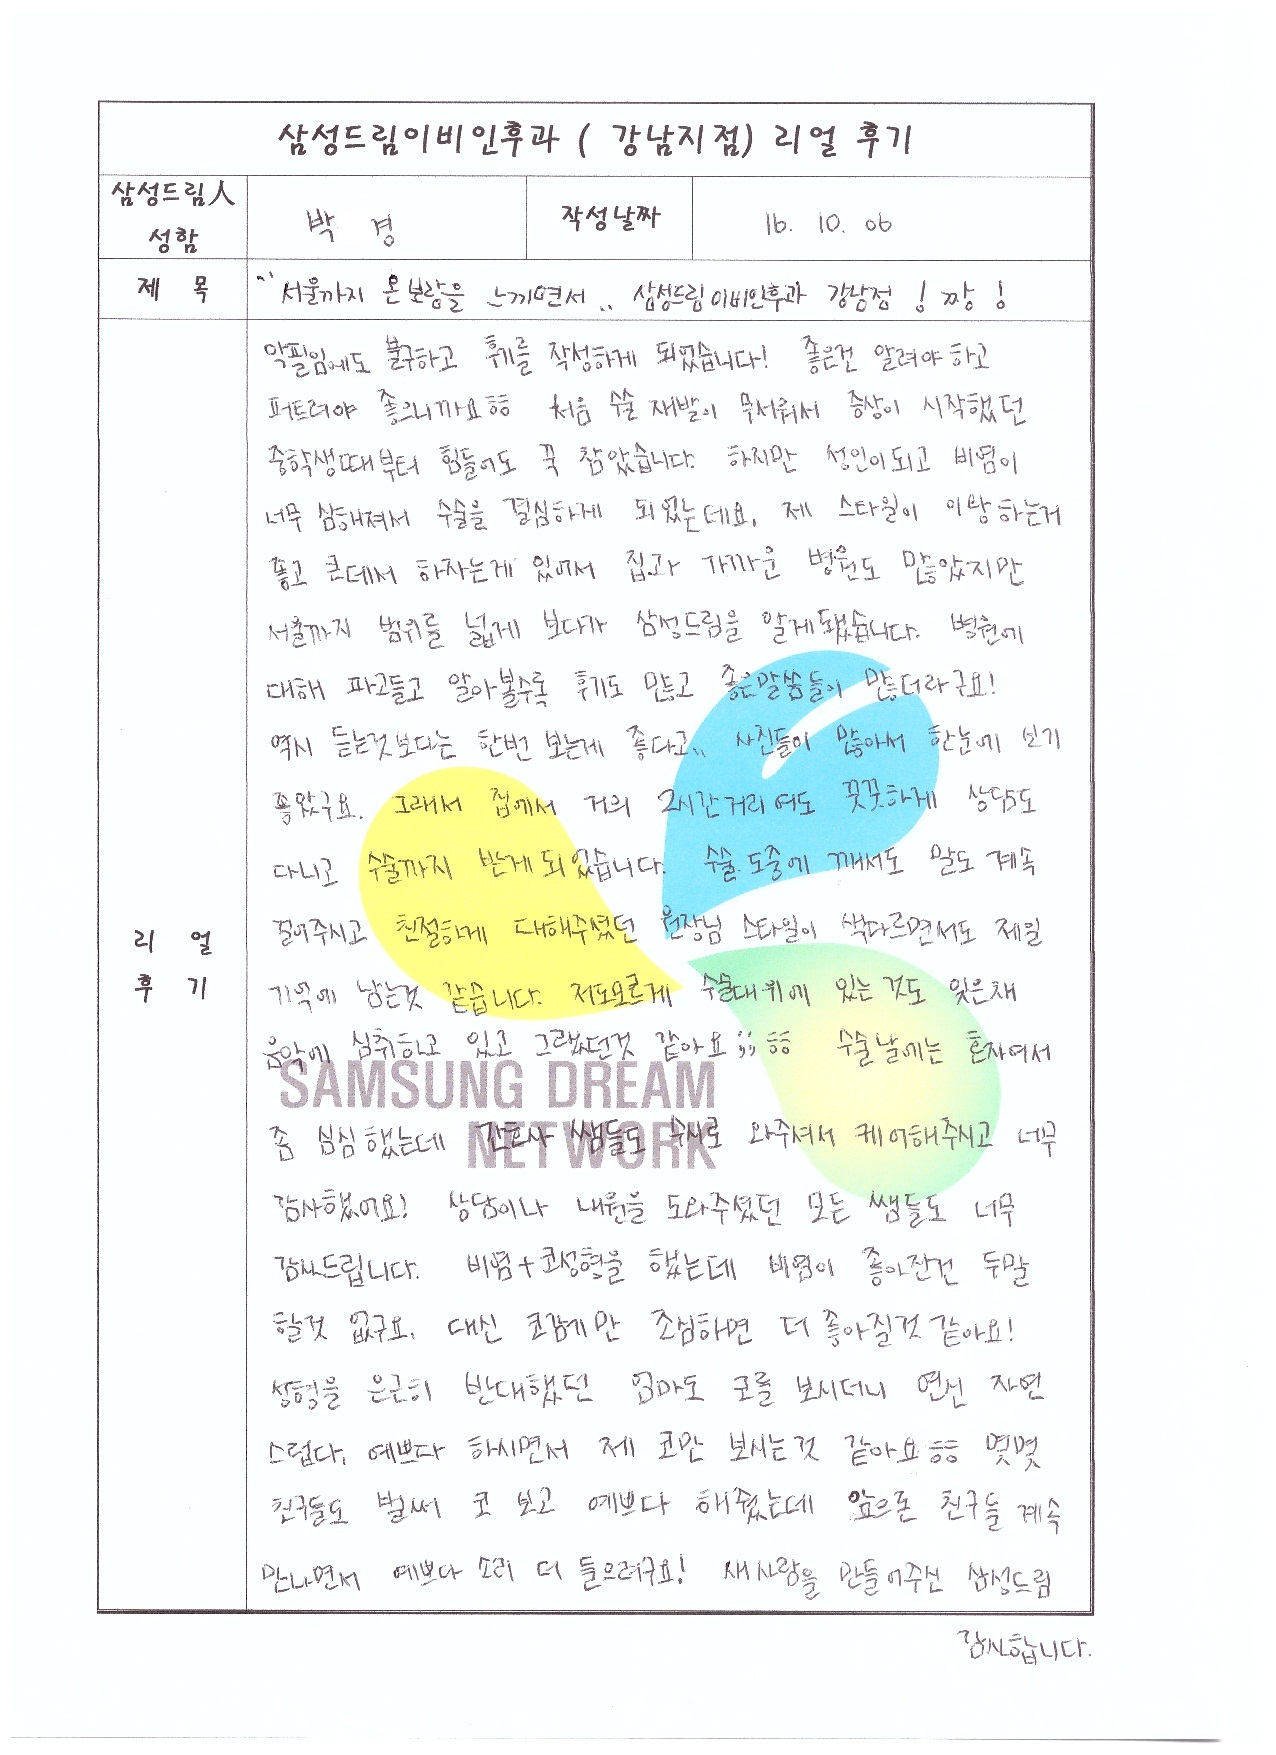 삼성드림이비인후과 ( 강남지점) 리얼 후기
삼성드림人 성함
박 경
작성날짜
16. 10. 06
제 목
"서울까지 온 보람을 느끼면서.. 삼성드림이비인후과 강남점 ! 짱 !
리 얼
후 기
악필임에도 불구하고 후기를 작성하게 되었습니다! 좋은건 알려야 하고
퍼트려야 좋으니까요ㅎㅎ 처음 수술 재발이 무서워서 증상이 시작했던
중학생때부터 힘들어도 꾹 참았습니다. 하지만 성인이되고 비염이
너무 심해져서 수술을 결심하게 되었는데요, 제 스타일이 이왕 하는거
좋고 큰데서 하자는게 있어서 집과 가까운 병원도 많았지만
서울까지 범위를 넓게 보다가 삼성드림을 알게됐습니다. 병원에
대해 파고들고 알아볼수록 후기도 많고 좋은말씀들이 많더라구요!
역시 듣는것보다는 한번 보는게 좋다고.. 사진들이 많아서 한눈에 보기
좋았구요. 그래서 집에서 거의 2시간거리여도 꿋꿋하게 상담도
다니고 수술까지 받게되었습니다. 수술 도중에 깨서도 말도 계속
걸어주시고 친절하게 대해주셨던 원장님 스타일이 색다르면서도 제일
기억에 남는것 같습니다. 저도모르게 수술대위에 있는 것도 잊은채
음악에 심취하고 있고 그랬던것 같아요;; ㅎㅎ 수술날에는 혼자여서
SAMSUNG DREAM
좀 심심했는데 간호사 쌤들도 수시로 와주셔서 케어해주시고 너무
NETWORK
감사했어요! 상담이나 내원을 도와주셨던 모든 쌤들도 너무
감사드립니다. 비염+코성형을 했는데 비염이 좋아진건 두말
할것 없구요. 대신 코감기만 조심하면 더 좋아질것 같아요!
성형을 은근히 반대했던 엄마도 코를 보시더니 연신 자연
스럽다, 예쁘다 하시면서 제 코만 보시는것 같아요ㅎㅎ 몇몇
친구들도 벌써 코 보고 예쁘다 해줬는데 앞으론 친구들 계속
만나면서 예쁘다 소리 더 들으려구요! 새사람을 만들어주신 삼성드림
감사합니다.